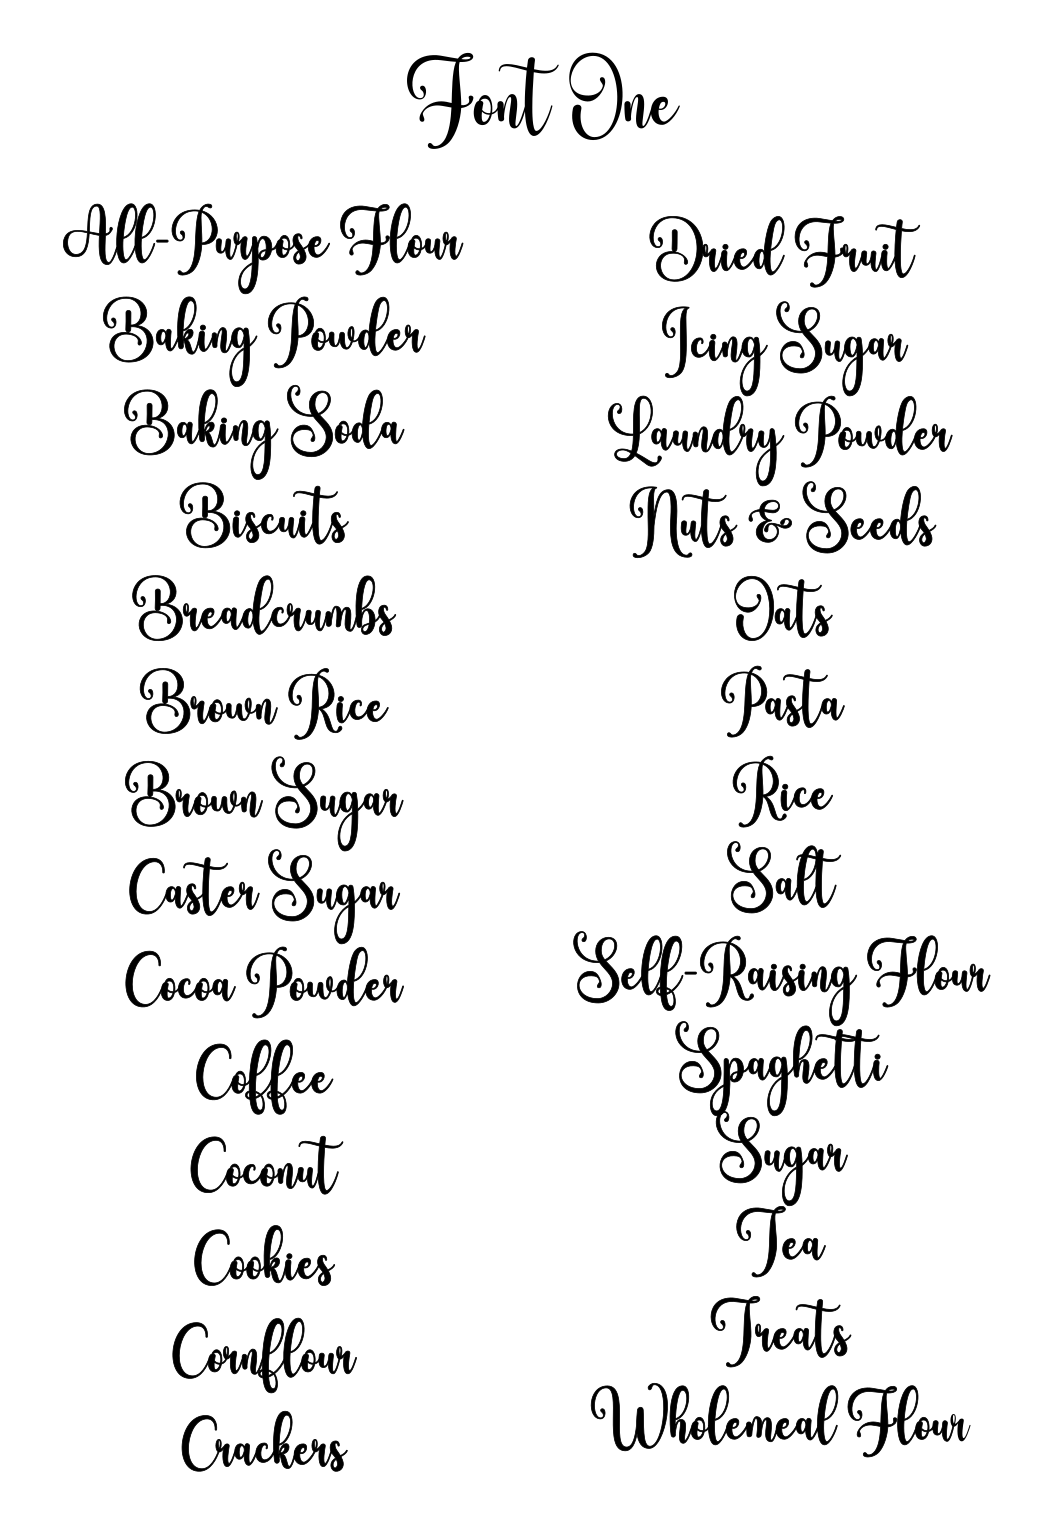 Font One
All-Purpose Flour
Baking Powder
Baking Soda
Biscuits
Breadcrumbs
Brown Rice
Brown Sugar
Caster Sugar
Cocoa Powder
Coffee
Coconut
Cookies
Cornflour
Crackers
Dried Fruit
Icing Sugar
Laundry Powder
Nuts & Seeds
Oats
Pasta
Rice
Salt
Self-Raising Flour
Spaghetti
Sugar
Tea
Treats
Wholemeal Flour